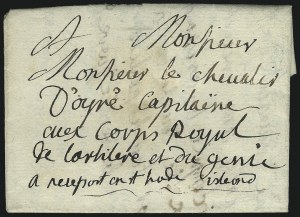 A Monsieur
Monsieur le chevalier
D'oyré Capitaine
au Corps Royal
de l'artilere et du genie
a neieport ent hode island